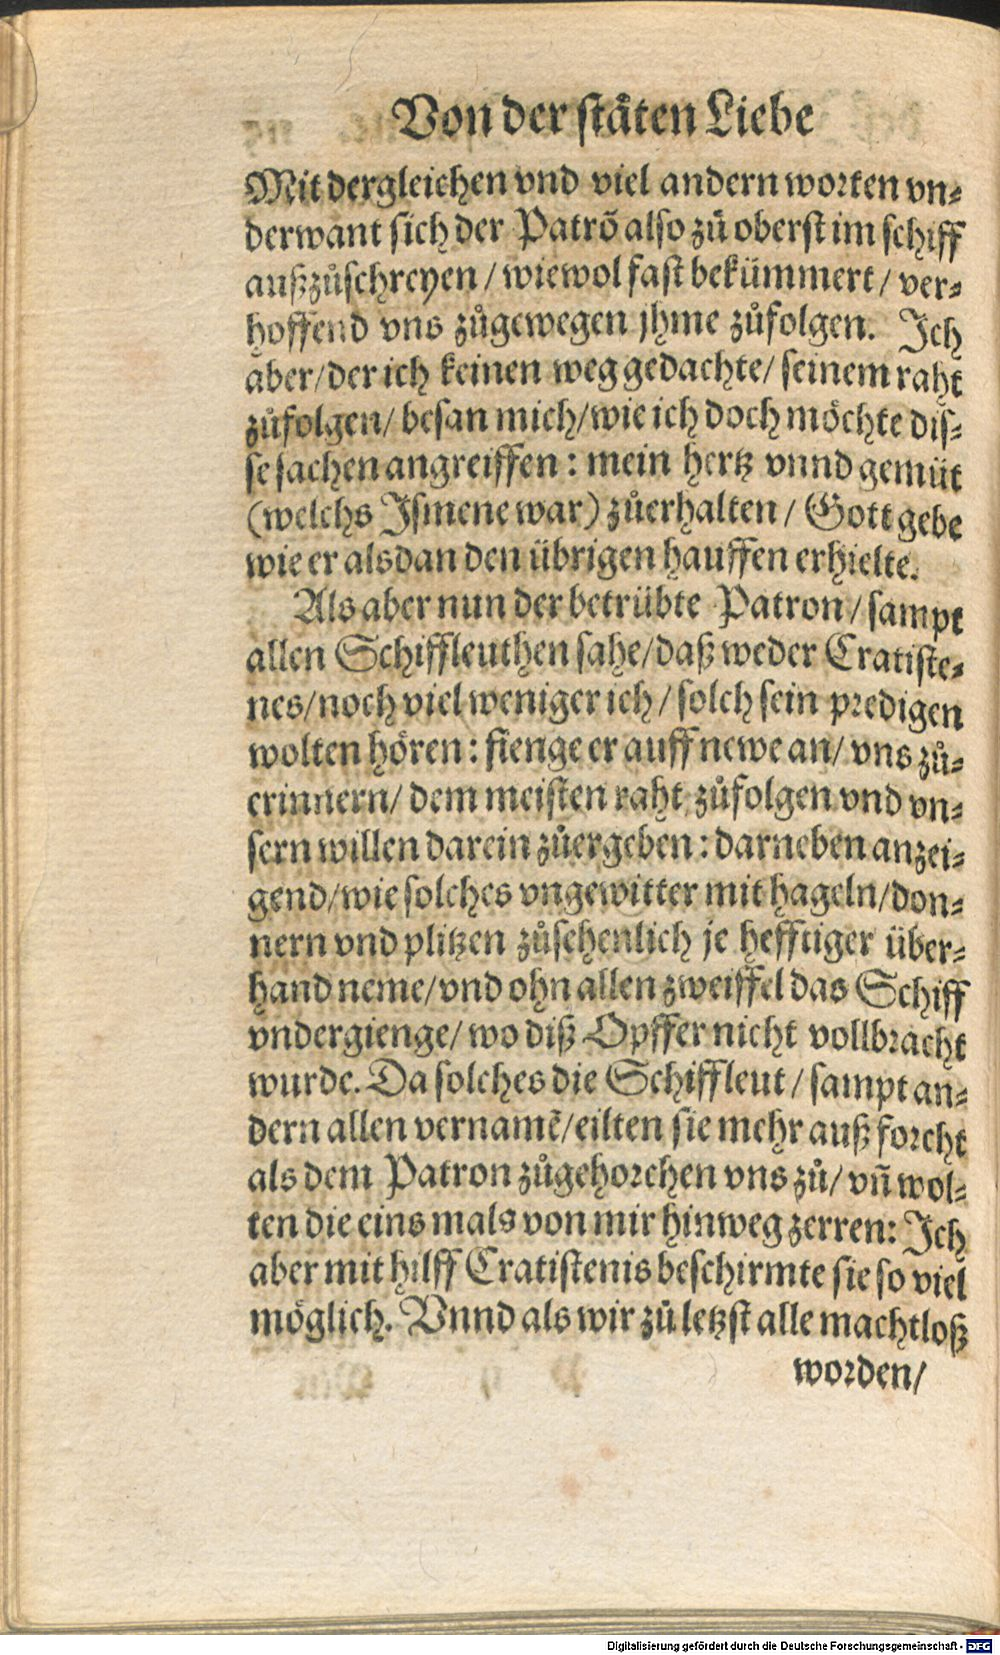 Von der ståten Liebe
Mit dergleichen vnd viel andern worten vn⸗
derwant sich der Patrõ also zů oberst im schiff
außzůschreyen / wiewol fast bekümmert / ver⸗
hoffend vns zůgewegen jhme zůfolgen. Ich
aber / der ich keinen weg gedachte / seinem raht
zůfolgen / besan mich / wie ich doch möchte dis⸗
se sachen angreiffen : mein hertz vnnd gemüt
(welchs Ismene war) zůerhalten / Gott gebe
wie er alsdan den übrigen hauffen erhielte.
Als aber nun der betrübte Patron / sampt
allen Schiffleuthen sahe / daß weder Cratiste⸗
nes / noch viel weniger ich / solch sein predigen
wolten hören : fienge er auff newe an / vns zů⸗
erinnern / dem meisten raht zůfolgen vnd vn⸗
sern willen darein zůergeben : darneben anzei⸗
gend / wie solches vngewitter mit hageln / don⸗
nern vnd plitzen zůsehenlich je hefftiger über⸗
hand neme / vnd ohn allen zweiffel das Schiff
vndergienge / wo diß Opffer nicht vollbracht
wurde. Da solches die Schiffleut / sampt an⸗
dern allen vernamẽ / eilten sie mehr auß forcht
als dem Patron zůgehorchen vns zů / vñ wol⸗
ten die eins mals von mir hinweg zerren : Ich
aber mit hilff Cratistenis beschirmte sie so viel
möglich. Vnnd als wir zů letzst alle machtloß
worden /
Digitalisierung gefördert durch die Deutsche Forschungsgemeinschaft - DFG